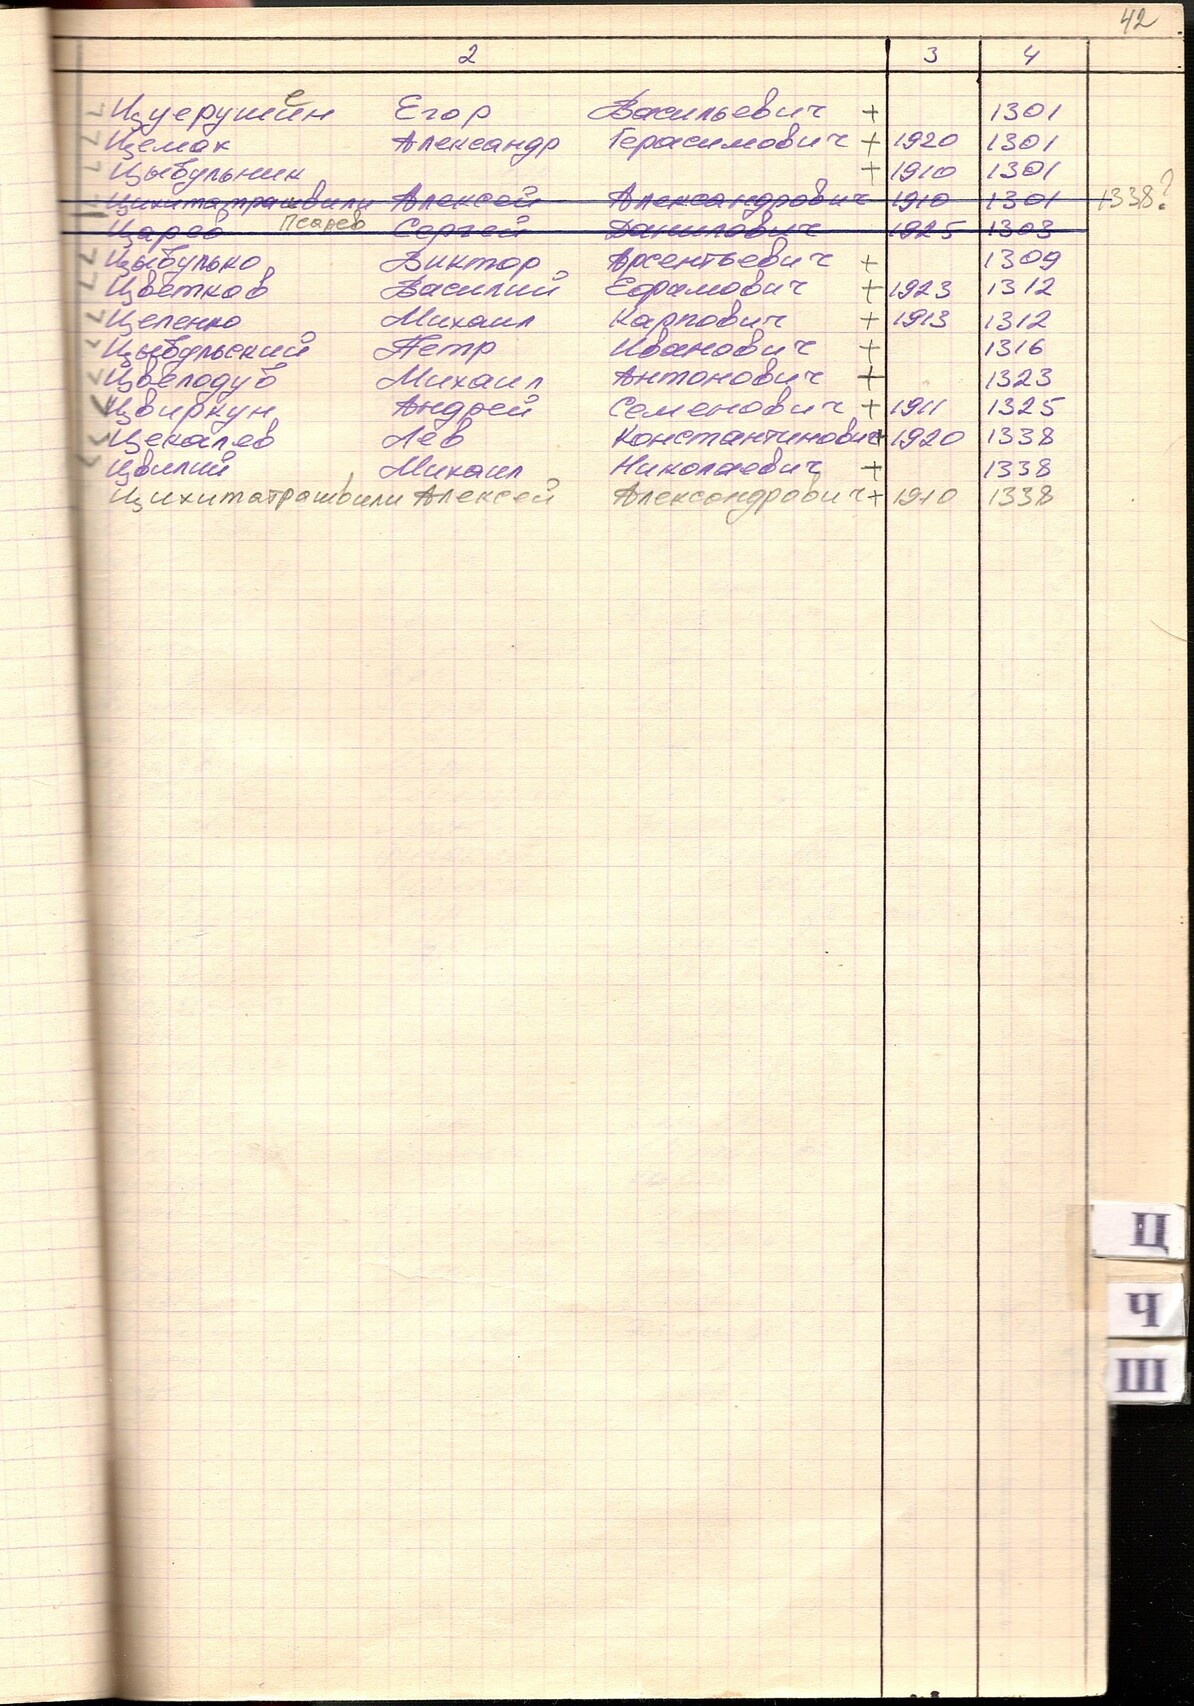 42
2 3 4
е
Цуерушин Егор Васильевич + 1301
Цемак Александр Герасимович + 1920 1301
Цыбульник + 1910 1301
Цихитатрашвили Алексей Александрович 1910 1301 1338?
Царев Псарев Сергей Данилович 1925 1303
Цыбулько Виктор Арсентьевич + 1309
Цветков Василий Ефрамович + 1923 1312
Целенко Михаил Карпович + 1913 1312
Цыбульский Петр Иванович + 1316
Цвелодуб Михаил Антонович + 1323
Цвиркун Андрей Семенович + 1911 1325
Цекалев Лев Константинович + 1920 1338
Цвилий Михаил Николаевич + 1338
Цихитатрашвили Алексей Александрович + 1910 1338
Ц
Ч
Ш